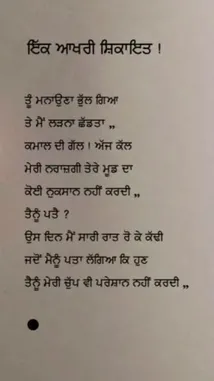 ਇੱਕ ਆਖਰੀ ਸ਼ਿਕਾਇਤ !
ਤੂੰ ਮਨਾਉਣਾ ਭੁੱਲ ਗਿਆ
ਤੇ ਮੈਂ ਲੜਨਾ ਛੱਡਤਾ ,,
ਕਮਾਲ ਦੀ ਗੱਲ ! ਅੱਜ ਕੱਲ
ਮੇਰੀ ਨਰਾਜ਼ਗੀ ਤੇਰੇ ਮੂਡ ਦਾ
ਕੋਈ ਨੁਕਸਾਨ ਨਹੀਂ ਕਰਦੀ ,,
ਤੈਨੂੰ ਪਤੈ ?
ਉਸ ਦਿਨ ਮੈਂ ਸਾਰੀ ਰਾਤ ਰੋ ਕੇ ਕੱਢੀ
ਜਦੋਂ ਮੈਨੂੰ ਪਤਾ ਲੱਗਿਆ ਕਿ ਹੁਣ
ਤੈਨੂੰ ਮੇਰੀ ਚੁੱਪ ਵੀ ਪਰੇਸ਼ਾਨ ਨਹੀਂ ਕਰਦੀ ,,